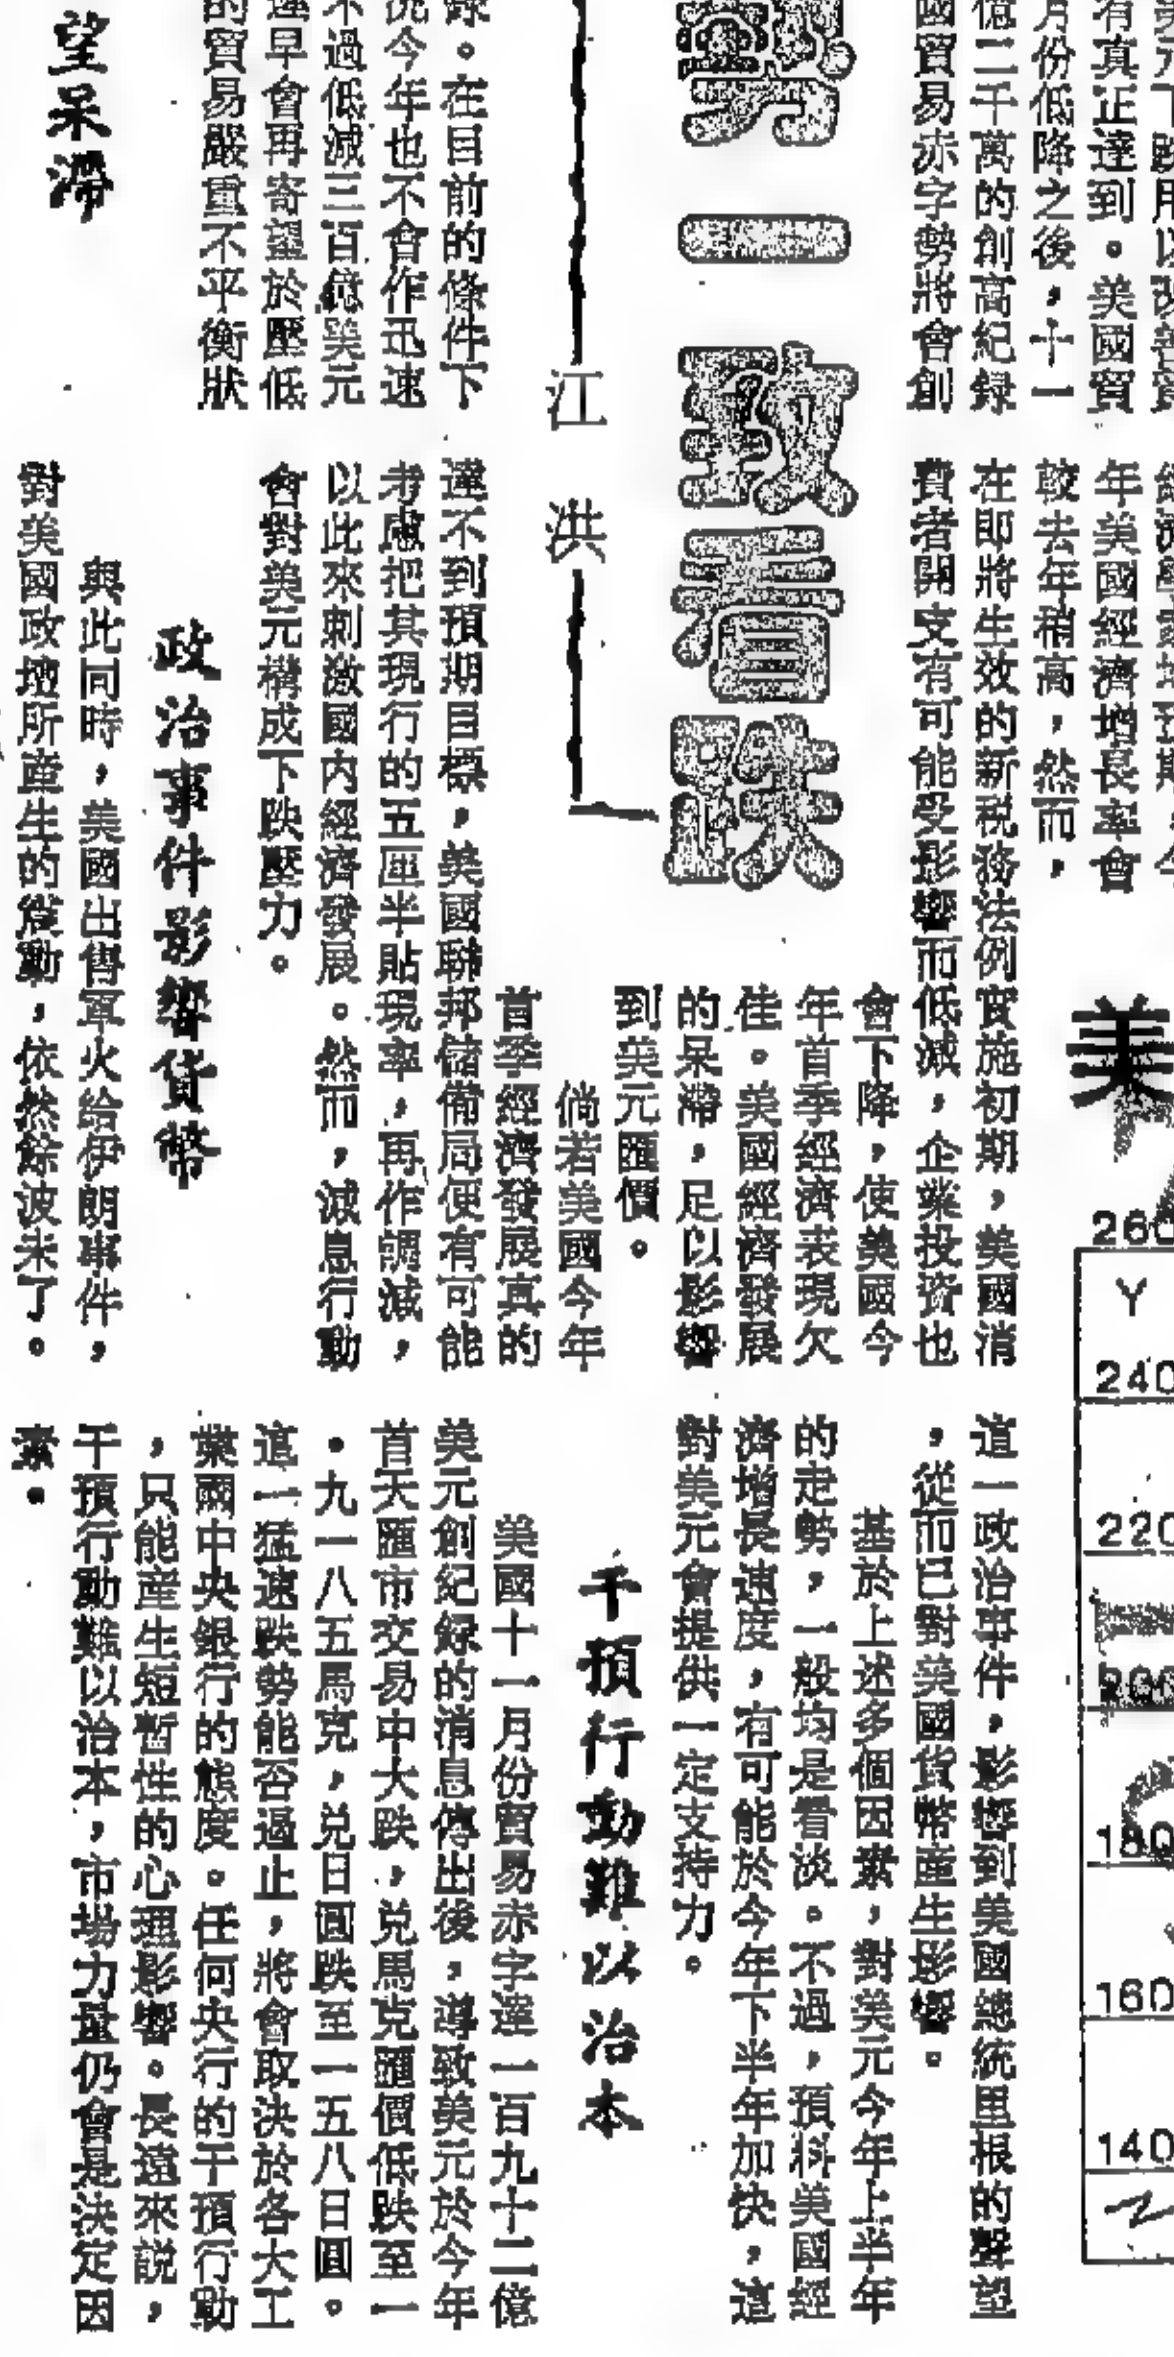 有真正達到。美國貿
月份低降之後，十一
億二千萬的創高紀錄
國貿易赤字勢將會創
勢一致看跌
江洪
錄。在目前的條件下
況今年也不會作迅速
不過低減三百億美元
遲早會再寄望於壓低
的貿易嚴重不平衡狀
望呆滯
年美國經濟增長率會
較去年稍高，然而，
在即將生效的新稅務法例實施初期，美國消
費者開支有可能受影響而低減，企業投資也
會下降，使美國今
年首季經濟表現欠
佳。美國經濟發展
的呆滯，足以影響
到美元匯價。
倘若美國今年
首季經濟發展真的
達不到預期目標，美國聯邦儲備局便有可能
考慮把其現行的五厘半貼現率，再作調減，
以此來刺激國內經濟發展。然而，減息行動
會對美元構成下跌壓力。
政治事件影響貨幣
與此同時，美國出售軍火給伊朗事件，
對美國政壇所產生的震動，依然餘波未了。
這一政治事件，影響到美國總統里根的聲望
，從而已對美國貨幣產生影響。
基於上述多個因素，對美元今年上半年
的走勢，一般均是看淡。不過，預料美國經
濟增長速度，有可能於今年下半年加快，這
對美元會提供一定支持力。
干預行動難以治本
美國十一月份貿易赤字達一百九十二億
美元創紀錄的消息傳出後，導致美元於今年
首天匯市交易中大跌，兌馬克匯價低跌至一
．九一八五馬克，兌日圓跌至一五八日圓。
這一猛速跌勢能否遏止，將會取決於各大工
業國中央銀行的態度。任何央行的干預行動
，只能產生短暫性的心理影響。長遠來說，
干預行動難以治本，市場力量仍會是決定因
素。
美
260
Y
240
220
200
180
160
140